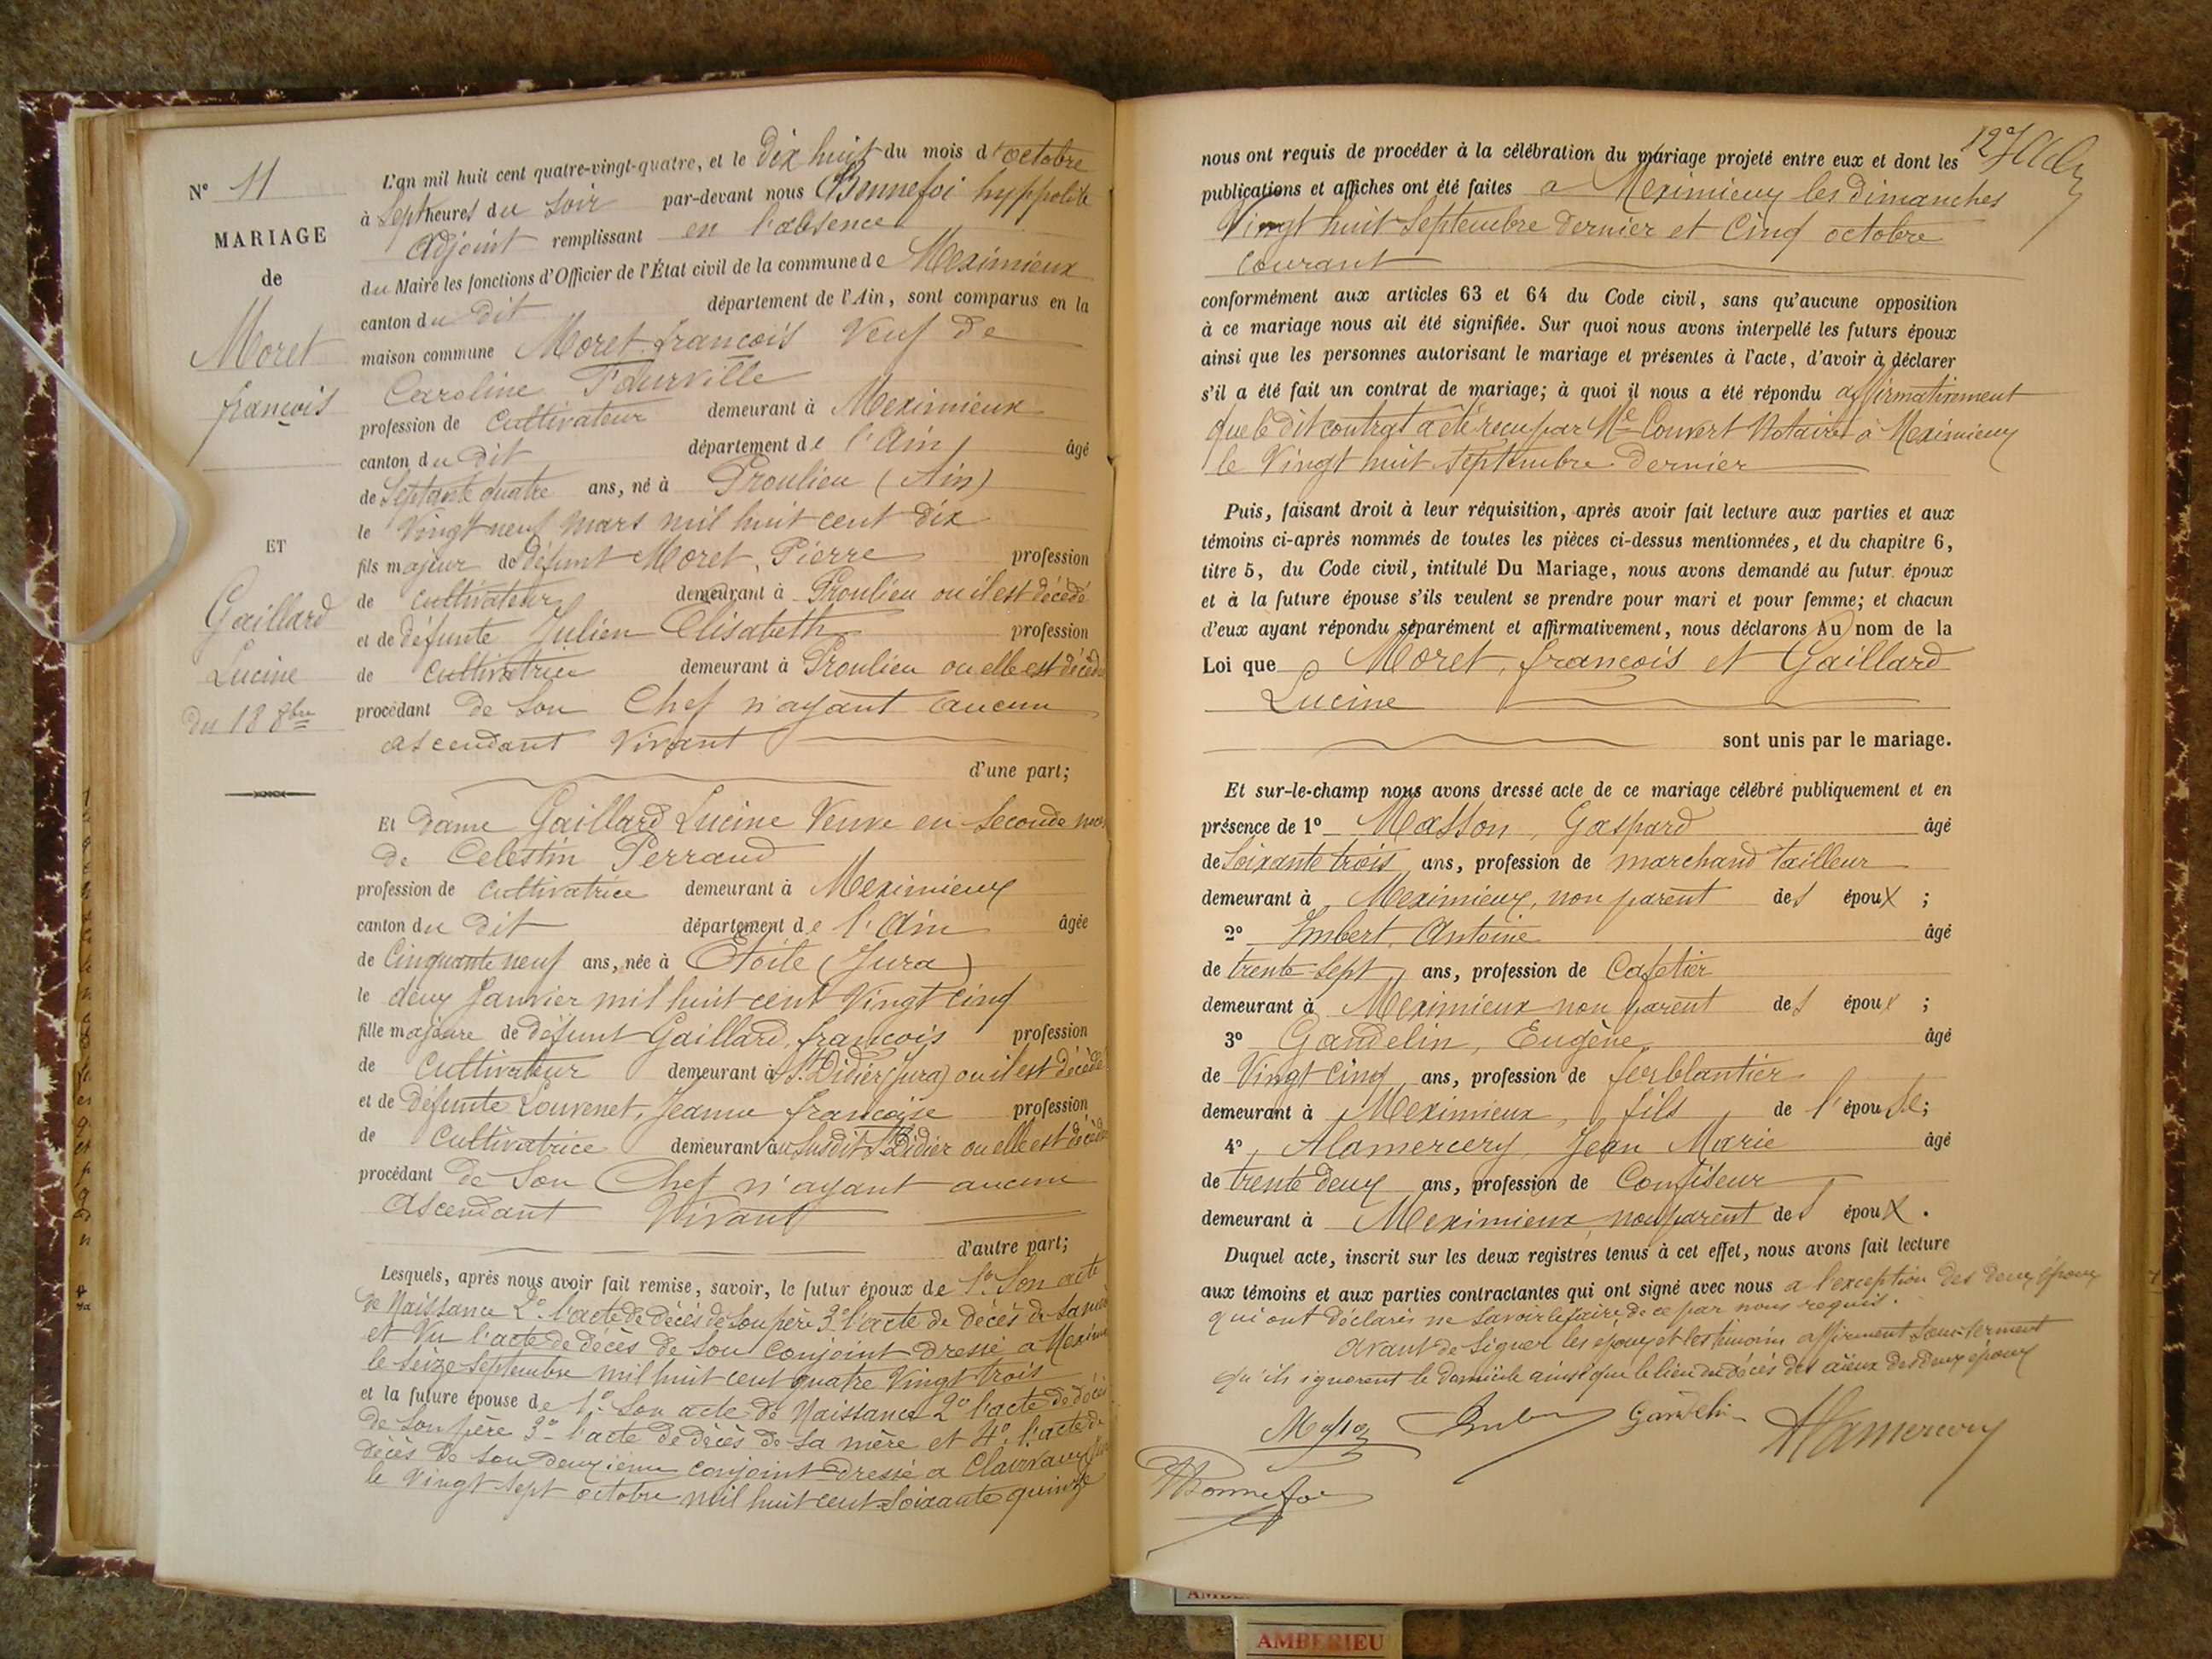 N° 11
MARIAGE
de
Moret
françois
ET
Gaillard
Lucine
du 18 8bre
L'an mil huit cent quatre-vingt-quatre, et le Dix huit du mois d'octobre
à Sept heures du Soir par-devant nous Bonnefoi hyppolite
Adjoint remplissant en l'absence
du Maire les fonctions d'Officier de l'État civil de la commune de Meximieux
canton du dit département de l'Ain, sont comparus en la
maison commune Moret françois Veuf de
Caroline Tourville
profession de Cultivateur demeurant à Meximieux
canton du dit département de l'Ain, âgé
de Septante quatre ans, né à Proulieu (Ain)
le Vingt neuf mars mil huit cent dix
fils majeur de défunt Moret, Pierre profession
de cultivateur demeurant à Proulieu ou il est décédé
et de défunte Julien Elisabeth profession
de cultivatrice demeurant à Proulieu ou elle est décédé
procédant de Son Chef n'ayant aucun
ascendant Vivant
d'une part;
Et dame Gaillard Lucine Veuve en Seconde noce
de Celestin Perraud
profession de cultivatrice demeurant à Meximieux
canton du dit département de l'Ain âgée
de Cinquante neuf ans, née à Etoile (Jura)
le deux Janvier mil huit cent Vingt cinq
fille majeure de défunt Gaillard, françois profession
de Cultivateur demeurant à St Didier (Jura) ou il est décédé
et de défunte Louvenet, Jeanne françoise profession
de Cultivatrice demeurant au Susdit St Didier ou elle est décédé
procédant de Son Chef n'ayant aucun
Ascendant Vivant
d'autre part;
Lesquels, après nous avoir fait remise, savoir, le futur époux de 1° Son acte
de Naissance 2° l'acte de décès de Son père 3° l'acte de décès de Sa mère
et Vu l'acte de décès de Son conjoint dressé a Mexim
le Seize Septembre mil huit cent quatre Vingt trois
et la future épouse de 1° Son acte de Naissance 2° l'acte de décès
de Son père 3° l'acte de décès de Sa mère et 4° l'acte de
décès de Son deuxieme conjoint dressé a Clairvaux
le Vingt Sept octobre mil huit cent Soixante quinze
127
nous ont requis de procéder à la célébration du mariage projeté entre eux et dont les
publications et affiches ont été faites a Meximieux les dimanches
Vingt huit Septembre dernier et Cinq octobre
courant
conformément aux articles 63 et 64 du Code civil, sans qu'aucune opposition
à ce mariage nous ait été signifiée. Sur quoi nous avons interpellé les futurs époux
ainsi que les personnes autorisant le mariage et présentes à l'acte, d'avoir à déclarer
s'il a été fait un contrat de mariage; à quoi il nous a été répondu affirmativement
que le dit contrat a été reçu par Me Couvert Notaire à Meximieux
le Vingt huit Septembre dernier
Puis, faisant droit à leur réquisition, après avoir fait lecture aux parties et aux
témoins ci-après nommés de toutes les pièces ci-dessus mentionnées, et du chapitre 6,
titre 5, du Code civil, intitulé Du Mariage, nous avons demandé au futur époux
et à la future épouse s'ils veulent se prendre pour mari et pour femme; et chacun
d'eux ayant répondu séparément et affirmativement, nous déclarons Au nom de la
Loi que Moret, françois et Gaillard
Lucine
sont unis par le mariage.
Et sur-le-champ nous avons dressé acte de ce mariage célébré publiquement et en
présence de 1° Masson, Gaspard âgé
de Soixante trois ans, profession de marchand tailleur
demeurant à Meximieux, non parent des époux ;
2° Imbert, Antoine âgé
de trente-Sept ans, profession de Cafetier
demeurant à Meximieux non parent des époux ;
3° Gandelin, Eugène âgé
de Vingt cinq ans, profession de ferblantier
demeurant à Meximieux, fils de l'épouse;
4° Alamercery, Jean Marie âgé
de trente deux ans, profession de Confiseur
demeurant à Meximieux, non parent des époux.
Duquel acte, inscrit sur les deux registres tenus à cet effet, nous avons fait lecture
aux témoins et aux parties contractantes qui ont signé avec nous a l'exception des deux époux
qui ont déclarés ne Savoir le faire de ce par nous requis.
Avant de Signer les époux et les témoins affirment Sous-Serment
qu'ils ignorent le domicile ainsi que le lieu du décès des aïeux des deux époux
Masson Imber Gandelin Alamercery
Bonnefoi
AMBERIEU